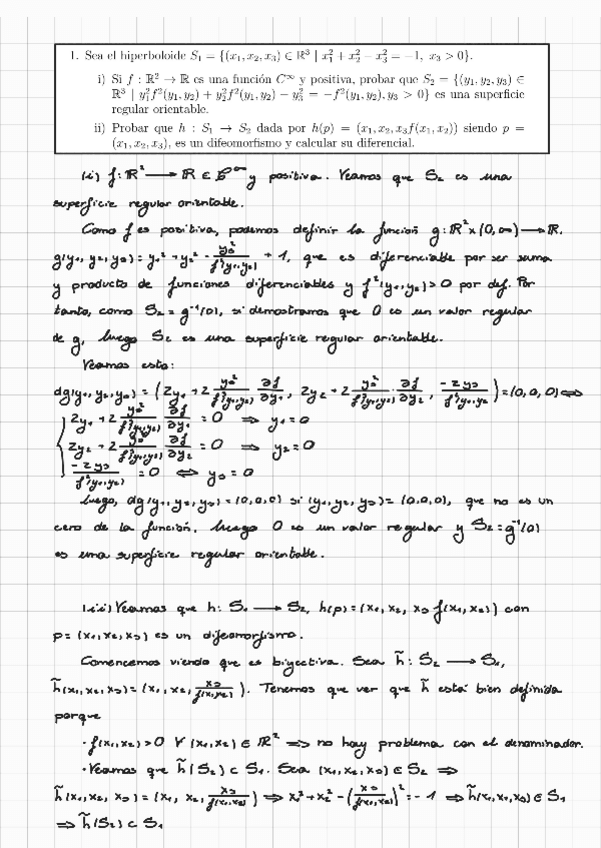 1. Sea el hiperboloide S₁ = {(x₁, x₂, x₃) ∈ ℝ³ | x₁² + x₂² − x₃² = −1, x₃ > 0}.
i) Si f : ℝ² → ℝ es una función C^∞ y positiva, probar que S₂ = {(y₁, y₂, y₃) ∈
ℝ³ | y₁²f²(y₁, y₂) + y₂²f²(y₁, y₂) − y₃² = −f²(y₁, y₂), y₃ > 0} es una superficie
regular orientable.
ii) Probar que h : S₁ → S₂ dada por h(p) = (x₁, x₂, x₃f(x₁, x₂)) siendo p =
(x₁, x₂, x₃), es un difeomorfismo y calcular su diferencial.
1.i) f: ℝ² → ℝ ∈ C^∞ y positiva. Veamos que S₂ es una
superficie regular orientable.
Como f es positiva, podemos definir la función g: ℝ² × (0, ∞) → ℝ,
g(y₁, y₂, y₃) = y₁² + y₂² − y₃²/f²(y₁,y₂) + 1, que es diferenciable por ser suma
y producto de funciones diferenciables y f²(y₁,y₂) > 0 por def. Por
tanto, como S₂ = g⁻¹(0), si demostramos que 0 es un valor regular
de g, luego S₂ es una superficie regular orientable.
Veamos esto:
dg(y₁, y₂, y₃) = (2y₁ + 2 y₃²/f³(y₁,y₂) ∂f/∂y₁, 2y₂ + 2 y₃²/f³(y₁,y₂) ∂f/∂y₂, −2y₃/f²(y₁,y₂)) = (0, 0, 0) ⟺
2y₁ + 2 y₃²/f³(y₁,y₂) ∂f/∂y₁ = 0 ⟹ y₁ = 0
2y₂ + 2 y₃²/f³(y₁,y₂) ∂f/∂y₂ = 0 ⟹ y₂ = 0
−2y₃/f²(y₁,y₂) = 0 ⟺ y₃ = 0
Luego, dg(y₁, y₂, y₃) = (0,0,0) si (y₁, y₂, y₃) = (0,0,0), que no es un
cero de la función. Luego 0 es un valor regular y S₂ = g⁻¹(0)
es una superficie regular orientable.
1.ii) Veamos que h: S₁ → S₂, h(p) = (x₁, x₂, x₃ f(x₁, x₂)) con
p = (x₁, x₂, x₃) es un difeomorfismo.
Comencemos viendo que es biyectiva. Sea h̃: S₂ → S₁,
h̃(x₁, x₂, x₃) = (x₁, x₂, x₃/f(x₁,x₂)). Tenemos que ver que h̃ está bien definida
porque
· f(x₁,x₂) > 0 ∀ (x₁,x₂) ∈ ℝ² ⟹ no hay problema con el denominador.
· Veamos que h̃(S₂) ⊂ S₁. Sea (x₁, x₂, x₃) ∈ S₂ ⟹
h̃(x₁, x₂, x₃) = (x₁, x₂, x₃/f(x₁,x₂)) ⟹ x₁² + x₂² − (x₃/f(x₁,x₂))² = −1 ⟹ h̃(x₁,x₂,x₃) ∈ S₁
⟹ h̃(S₂) ⊂ S₁